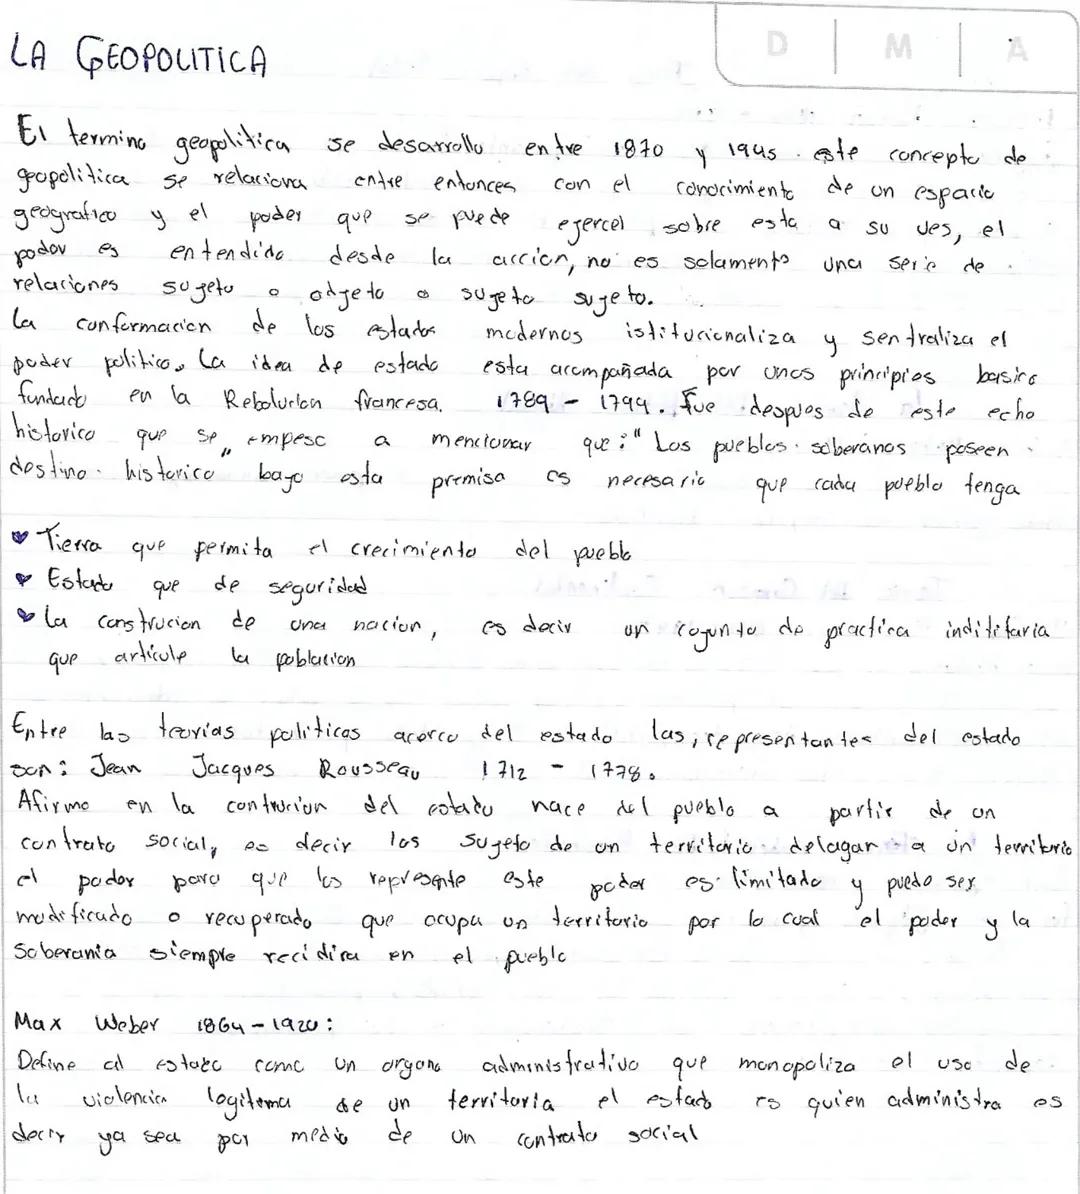 D | M | A
LA GEOPOLITICA
El termino geopolitica se desarrollo entre 1870 y 1945. este concepto de
geopolitica se relaciona entre entonces con el conocimiento de un espacio
geografico y el poder que se puede ejercel sobre esta a su ves, el
poder es entendido desde la accion, no es solamente una serie de
relaciones sugeto o obgeto o sugeto sugeto.
La conformacion de los estados modernos istitucionaliza y sentraliza el
poder politico. La idea de estado esta acompañada por unos principios basico
fundado en la Rebolucion francesa. 1789 - 1799. Fue despues de este echo
historico que se empeso a mencionar que: "Los pueblos soberanos poseen
destino historico" bajo esta premisa es necesario que cada pueblo tenga
Tierra que permita el crecimiento del pueblo
Estado que de seguridad
La construcion de una nacion, es decir un cojunto de practica indititaria
que articule la poblacion
Entre las teorias politicas acerca del estado las, representantes del estado
son: Jean Jacques Rousseau 1712 - 1778.
Afirmo en la contrucion del estado nace del pueblo a partir de un
contrato social, es decir los sugeto de un territorio delagar a un territorio
el poder para que los represente este poder es limitado y puedo ser
modificado o recuperado que ocupa un territorio por lo cual el poder y la
Soberania siempre recidira en el pueblo
Max Weber 1864-1920:
Define al estado como un organo administrativo que monopoliza el uso de
la violencia legitema de un territoria el estado es quien administra es
decir ya sea por medio de un contrato social